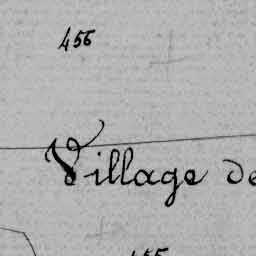 456
Village de